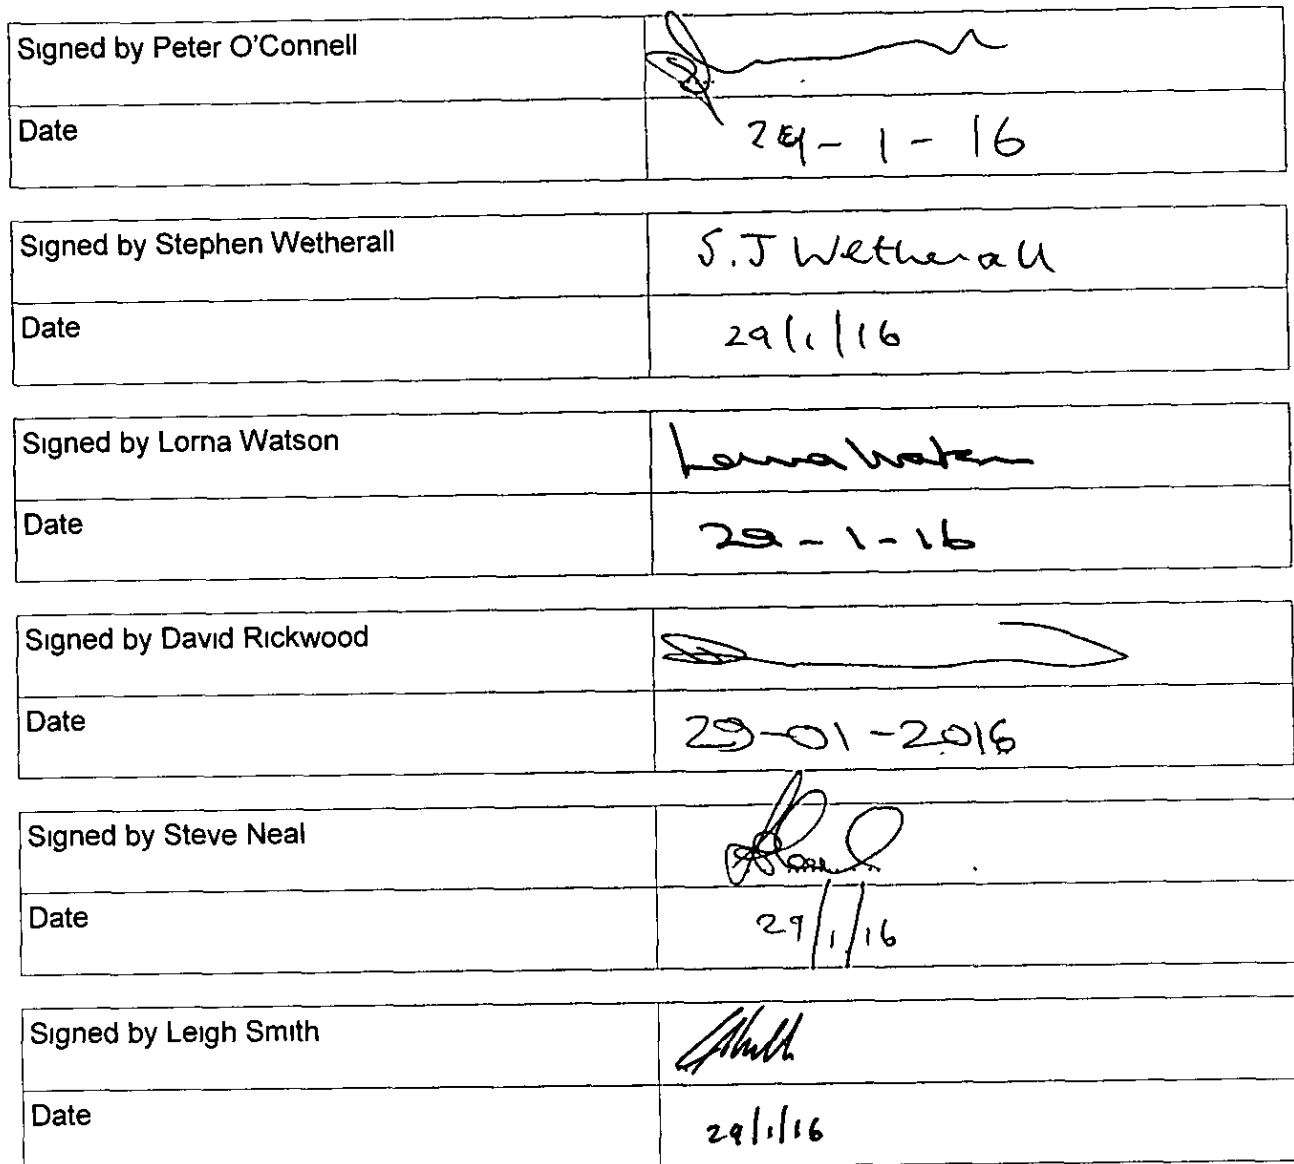 Signed by Peter O'Connell
Date 29-1-16
Signed by Stephen Wetherall S.J Wetherall
Date 29/1/16
Signed by Lorna Watson Lorna Watson
Date 29-1-16
Signed by David Rickwood
Date 29-01-2016
Signed by Steve Neal
Date 29/1/16
Signed by Leigh Smith
Date 29/1/16